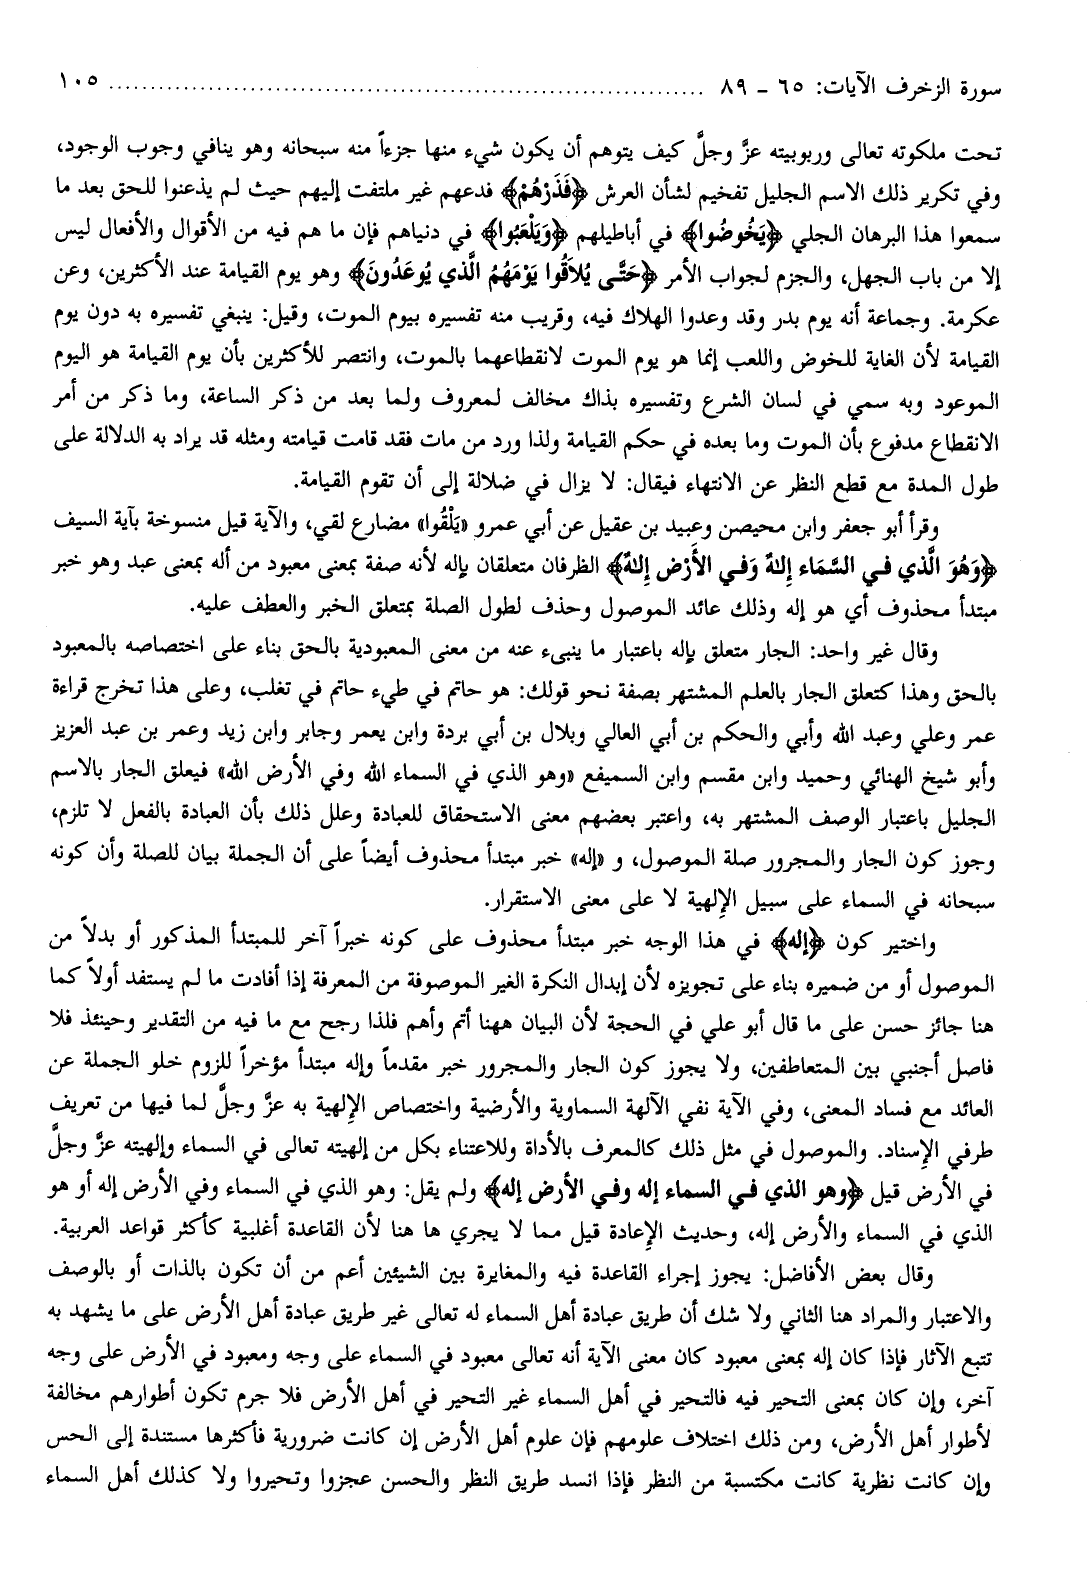 سورة الزخرف الآيات: ٦٥ - ٨٩ ........................................................................ ١٠٥
تحت ملكوته تعالى وربوبيته عزَّ وجلَّ كيف يتوهم أن يكون شيء منها جزءاً منه سبحانه وهو ينافي وجوب الوجود،
وفي تكرير ذلك الاسم الجليل تفخيم لشأن العرش ﴿فَذَرْهُمْ﴾ فدعهم غير ملتفت إليهم حيث لم يذعنوا للحق بعد ما
سمعوا هذا البرهان الجلي ﴿يَخُوضُوا﴾ في أباطيلهم ﴿وَيَلْعَبُوا﴾ في دنياهم فإن ما هم فيه من الأقوال والأفعال ليس
إلا من باب الجهل، والجزم لجواب الأمر ﴿حَتَّى يُلاَقُوا يَوْمَهُمُ الَّذي يُوعَدُونَ﴾ وهو يوم القيامة عند الأكثرين، وعن
عكرمة. وجماعة أنه يوم بدر وقد وعدوا الهلاك فيه، وقريب منه تفسيره بيوم الموت، وقيل: ينبغي تفسيره به دون يوم
القيامة لأن الغاية للخوض واللعب إنما هو يوم الموت لانقطاعهما بالموت، وانتصر للأكثرين بأن يوم القيامة هو اليوم
الموعود وبه سمي في لسان الشرع وتفسيره بذاك مخالف لمعروف ولما بعد من ذكر الساعة، وما ذكر من أمر
الانقطاع مدفوع بأن الموت وما بعده في حكم القيامة ولذا ورد من مات فقد قامت قيامته ومثله قد يراد به الدلالة على
طول المدة مع قطع النظر عن الانتهاء فيقال: لا يزال في ضلالة إلى أن تقوم القيامة.
وقرأ أبو جعفر وابن محيصن وعبيد بن عقيل عن أبي عمرو «يَلْقُوا» مضارع لقي، والآية قيل منسوخة بآية السيف
﴿وَهُوَ الَّذي في السَّمَاء إِلٰهٌ وَفي الأَرْض إِلٰهٌ﴾ الظرفان متعلقان بإله لأنه صفة بمعنى معبود من أله بمعنى عبد وهو خبر
مبتدأ محذوف أي هو إله وذلك عائد الموصول وحذف لطول الصلة بمتعلق الخبر والعطف عليه.
وقال غير واحد: الجار متعلق بإله باعتبار ما ينبىء عنه من معنى المعبودية بالحق بناء على اختصاصه بالمعبود
بالحق وهذا كتعلق الجار بالعلم المشتهر بصفة نحو قولك: هو حاتم في طيء حاتم في تغلب، وعلى هذا تخرج قراءة
عمر وعلي وعبد الله وأبي والحكم بن أبي العالي وبلال بن أبي بردة وابن يعمر وجابر وابن زيد وعمر بن عبد العزيز
وأبو شيخ الهنائي وحميد وابن مقسم وابن السميفع «وهو الذي في السماء الله وفي الأرض الله» فيعلق الجار بالاسم
الجليل باعتبار الوصف المشتهر به، واعتبر بعضهم معنى الاستحقاق للعبادة وعلل ذلك بأن العبادة بالفعل لا تلزم،
وجوز كون الجار والمجرور صلة الموصول، و «إله» خبر مبتدأ محذوف أيضاً على أن الجملة بيان للصلة وأن كونه
سبحانه في السماء على سبيل الإلهية لا على معنى الاستقرار.
واختير كون ﴿إله﴾ في هذا الوجه خبر مبتدأ محذوف على كونه خبراً آخر للمبتدأ المذكور أو بدلاً من
الموصول أو من ضميره بناء على تجويزه لأن إبدال النكرة الغير الموصوفة من المعرفة إذا أفادت ما لم يستفد أولاً كما
هنا جائز حسن على ما قال أبو علي في الحجة لأن البيان ههنا أتم وأهم فلذا رجح مع ما فيه من التقدير وحينئذ فلا
فاصل أجنبي بين المتعاطفين، ولا يجوز كون الجار والمجرور خبر مقدماً وإله مبتدأ مؤخراً للزوم خلو الجملة عن
العائد مع فساد المعنى، وفي الآية نفي الآلهة السماوية والأرضية واختصاص الإلهية به عزَّ وجلَّ لما فيها من تعريف
طرفي الإسناد. والموصول في مثل ذلك كالمعرف بالأداة وللاعتناء بكل من إلهيته تعالى في السماء وإلهيته عزَّ وجلَّ
في الأرض قيل ﴿وهو الذي في السماء إله وفي الأرض إله﴾ ولم يقل: وهو الذي في السماء وفي الأرض إله أو هو
الذي في السماء والأرض إله، وحديث الإعادة قيل مما لا يجري ها هنا لأن القاعدة أغلبية كأكثر قواعد العربية.
وقال بعض الأفاضل: يجوز إجراء القاعدة فيه والمغايرة بين الشيئين أعم من أن تكون بالذات أو بالوصف
والاعتبار والمراد هنا الثاني ولا شك أن طريق عبادة أهل السماء له تعالى غير طريق عبادة أهل الأرض على ما يشهد به
تتبع الآثار فإذا كان إله بمعنى معبود كان معنى الآية أنه تعالى معبود في السماء على وجه ومعبود في الأرض على وجه
آخر، وإن كان بمعنى التحير فيه فالتحير في أهل السماء غير التحير في أهل الأرض فلا جرم تكون أطوارهم مخالفة
لأطوار أهل الأرض، ومن ذلك اختلاف علومهم فإن علوم أهل الأرض إن كانت ضرورية فأكثرها مستندة إلى الحس
وإن كانت نظرية كانت مكتسبة من النظر فإذا انسد طريق النظر والحسن عجزوا وتحيروا ولا كذلك أهل السماء